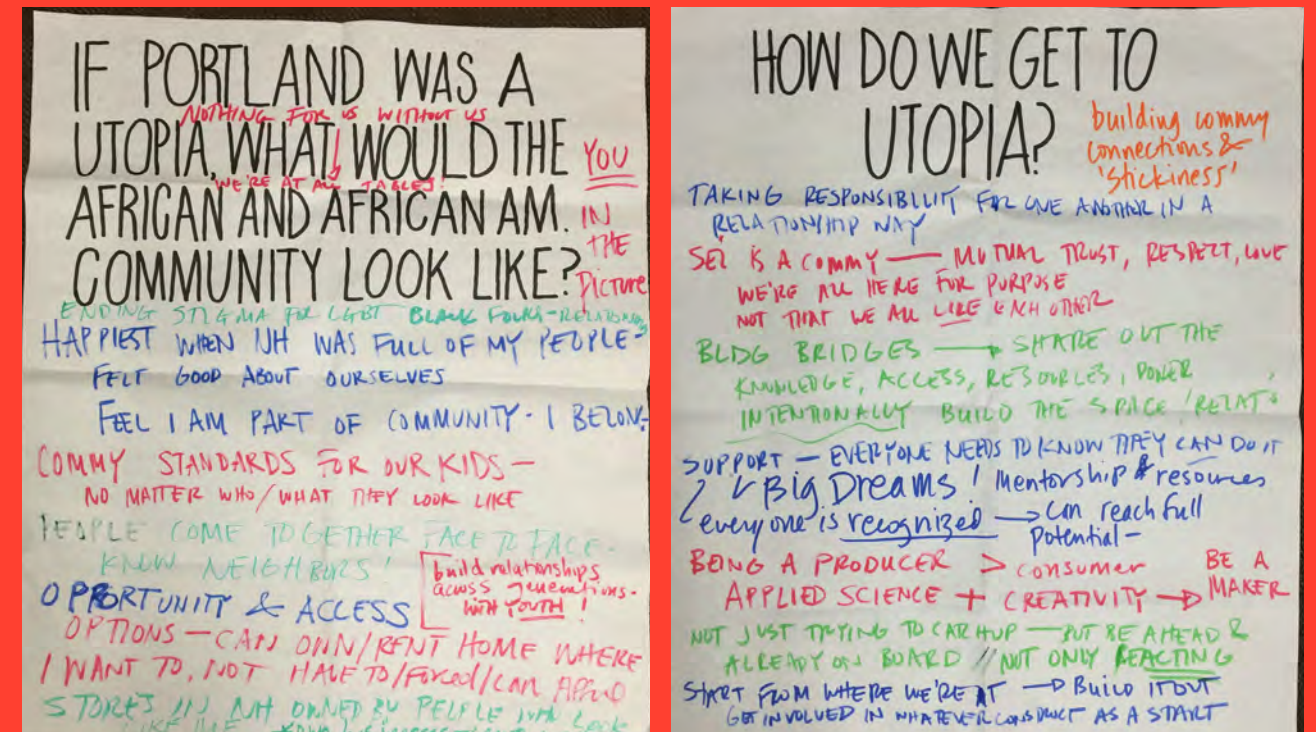 IF PORTLAND WAS A
NOTHING FOR US WITHOUT US
UTOPIA, WHAT WOULD THE
WE'RE AT ALL TABLES!
AFRICAN AND AFRICAN AM.
COMMUNITY LOOK LIKE?
YOU
IN
THE
PICTURE
ENDING STIGMA FOR LGBT BLACK FOLKS-
HAPPIEST WHEN NH WAS FULL OF MY PEOPLE-
FELT GOOD ABOUT OURSELVES
FEEL I AM PART OF COMMUNITY - I BELONG
COMMY STANDARDS FOR OUR KIDS -
NO MATTER WHO/WHAT THEY LOOK LIKE
PEOPLE COME TOGETHER FACE TO FACE-
KNOW NEIGHBORS!
build relationships
across generations-
WITH YOUTH!
OPPORTUNITY & ACCESS
OPTIONS - CAN OWN/RENT HOME WHERE
I WANT TO, NOT HAVE TO/Forced/CAN AFFORD
STORES IN NH OWNED BY PEOPLE WHO LOOK
LIKE ME
HOW DO WE GET TO
UTOPIA?
building commy
connections &
'stickiness'
TAKING RESPONSIBILIT FOR ONE ANOTHER IN A
RELATIONSHIP WAY
SEI IS A COMMY — MUTUAL TRUST, RESPECT, LOVE
WE'RE ALL HERE FOR PURPOSE
NOT THAT WE ALL LIKE EACH OTHER
BLDG BRIDGES → SHARE OUT THE
KNOWLEDGE, ACCESS, RESOURCES, POWER
INTENTIONALLY BUILD THE SPACE/RELAT
SUPPORT — EVERYONE NEEDS TO KNOW THEY CAN DO IT
Big Dreams! Mentorship & resources
everyone is recognized → can reach full
potential -
BEING A PRODUCER > consumer
APPLIED SCIENCE + CREATIVITY → BE A MAKER
NOT JUST TRYING TO CATCHUP — BUT BE AHEAD &
ALREADY ON BOARD // NOT ONLY REACTING
START FROM WHERE WE'RE AT → BUILD IT OUT
GET INVOLVED IN WHATEVER CONSTRUCT AS A START